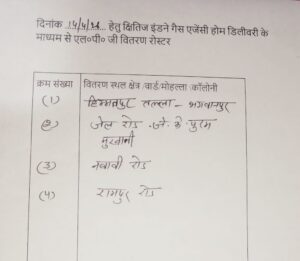 दिनांक 14/4/26... हेतु क्षितिज इंडने गैस एजेंसी होम डिलीवरी के
माध्यम से एल०पी० जी वितरण रोस्टर
क्रम संख्या वितरण स्थल क्षेत्र /वार्ड/मोहल्ला /कॉलोनी
(1) हिम्मतपुर तल्ला - भगवानपुर
(2) जेल रोड - जे. के पुरम
मुखानी
(3) नवाबी रोड
(4) रामपुर रोड